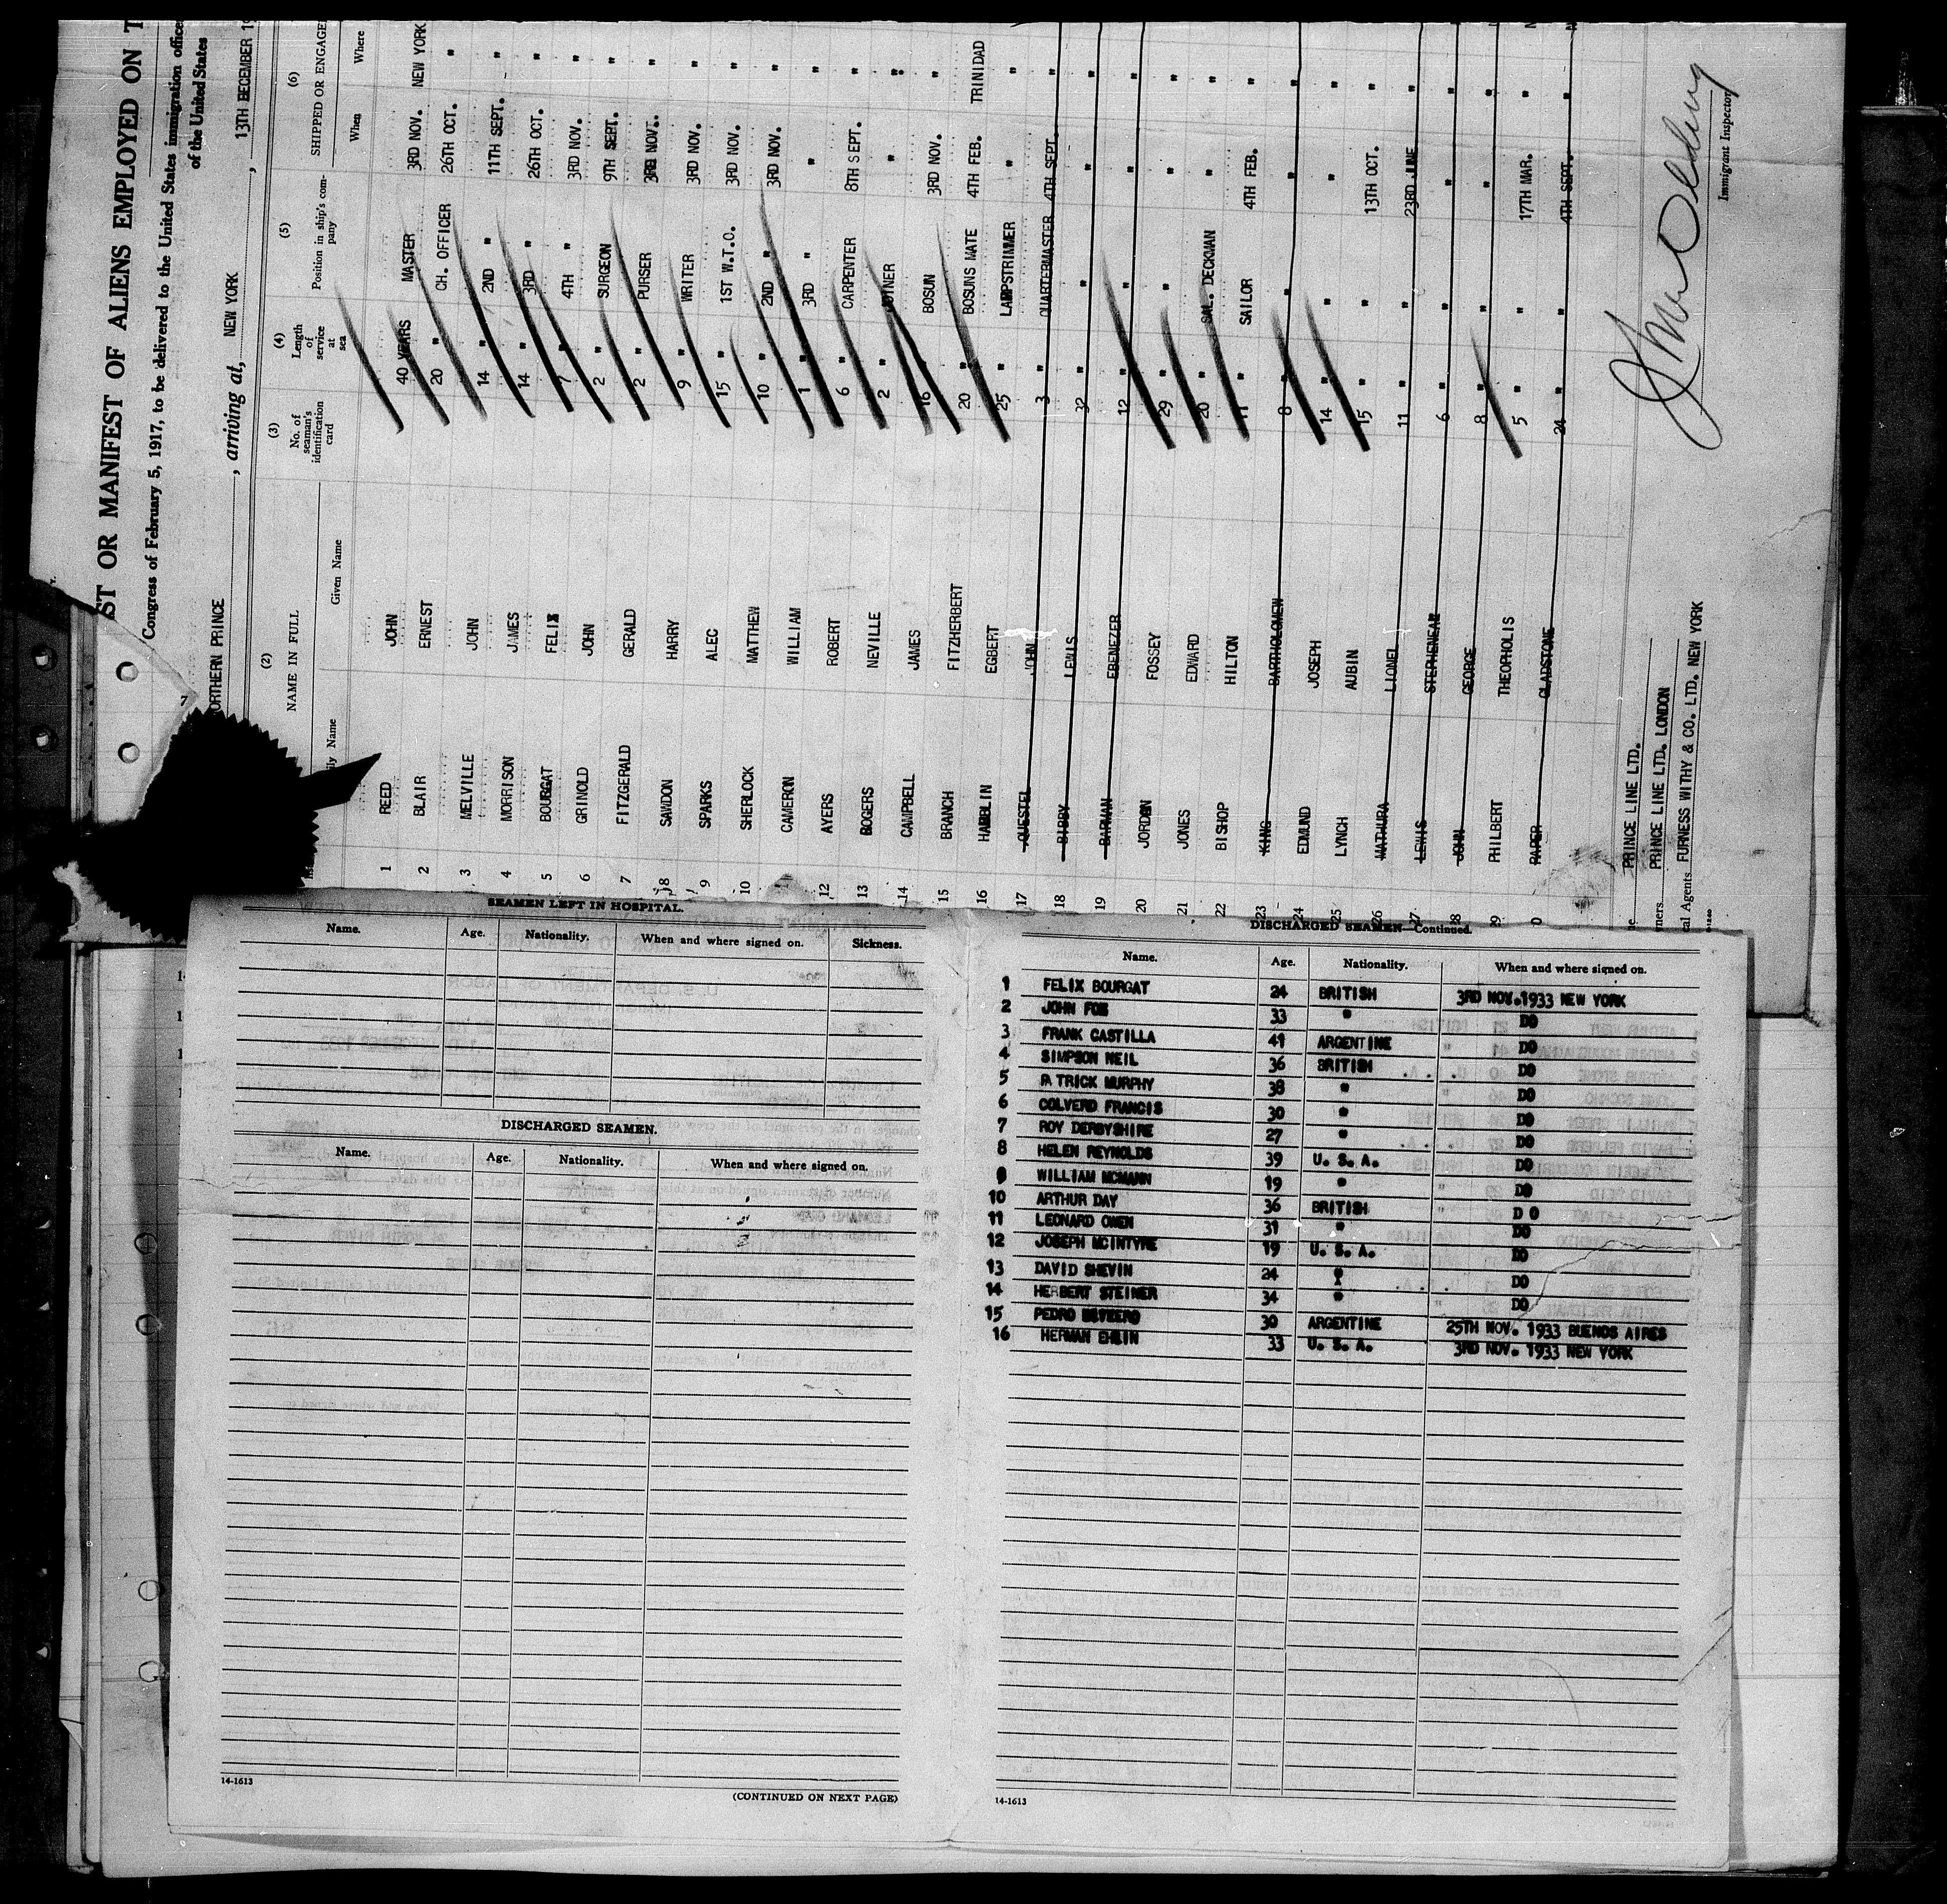 ST OR MANIFEST OF ALIENS EMPLOYED ON T
Congress of February 5, 1917, to be delivered to the United States immigration office
of the United States
ORTHERN PRINCE , arriving at, NEW YORK , 13TH DECEMBER 19
(2) (3) (4) (5) (6)
NAME IN FULL No. of seaman's identification card Length of service at sea Position in ship's company SHIPPED OR ENGAGE
ily Name Given Name When Where
1 REED JOHN 40 YEARS MASTER 3RD NOV. NEW YORK
2 BLAIR ERNEST 20 " CH. OFFICER 26TH OCT. "
3 MELVILLE JOHN 14 " 2ND " 11TH SEPT. "
4 MORRISON JAMES 14 " 3RD " 26TH OCT. "
5 BOURGAT FELIX 7 " 4TH " 3RD NOV. "
6 GRINOLD JOHN 2 " SURGEON 9TH SEPT. "
7 FITZGERALD GERALD 2 " PURSER 3RD NOV. "
8 SAWDON HARRY 9 " WRITER 3RD NOV. "
9 SPARKS ALEC 15 " 1ST W.T.O. 3RD NOV. "
10 SHERLOCK MATTHEW 10 " 2ND " 3RD NOV. "
CAMERON WILLIAM 1 " 3RD " " "
12 AYERS ROBERT 6 " CARPENTER 8TH SEPT. "
13 ROGERS NEVILLE 2 " JOINER " "
14 CAMPBELL JAMES 16 BOSUN 3RD NOV. "
15 BRANCH FITZHERBERT 20 " BOSUNS MATE 4TH FEB. TRINIDAD
16 HAMBLIN EGBERT 25 " LAMPSTRIMMER " "
17 QUESTEL JOHN 3 " QUARTERMASTER 4TH SEPT. "
18 BIBBY LEWIS 32 " " " "
19 BARMAN EBENEZER 12 " " " "
20 JORDEN FOSSEY 29 " " " "
21 JONES EDWARD 20 " SAL. DECKMAN " "
22 BISHOP HILTON 11 " SAILOR 4TH FEB. "
23 KING BARTHOLOMEW 8 " " " "
24 EDMUND JOSEPH 14 " " " "
25 LYNCH AUBIN 15 " " 13TH OCT. "
26 MATHURA LIONEL 11 " " 23RD JUNE "
27 LEWIS STEPHENEAN 6 " " " "
28 JOHN GEORGE 8 " " " "
29 PHILBERT THEOPHOLIS 5 " " 17TH MAR. "
0 PAPER GLADSTONE 24 " " 4TH SEPT. "
PRINCE LINE LTD.
ners PRINCE LINE LTD. LONDON
al Agents FURNESS WITHY & CO. LTD. NEW YORK
Immigrant Inspector
SEAMEN LEFT IN HOSPITAL.
Name. Age. Nationality. When and where signed on. Sickness.
DISCHARGED SEAMEN.
Name. Age. Nationality. When and where signed on.
14-1613
(CONTINUED ON NEXT PAGE)
DISCHARGED SEAMEN—Continued.
Name. Age. Nationality. When and where signed on.
1 FELIX BOURGAT 24 BRITISH 3RD NOV. 1933 NEW YORK
2 JOHN FOX 33 " DO
3 FRANK CASTILLA 41 ARGENTINE DO
4 SIMPSON NEIL 36 BRITISH DO
5 PATRICK MURPHY 38 " DO
6 COLVERD FRANCIS 30 " DO
7 ROY DERBYSHIRE 27 " DO
8 HELEN REYNOLDS 39 U. S. A. DO
9 WILLIAM MCMANN 19 " DO
10 ARTHUR DAY 36 BRITISH D O
11 LEONARD OWEN 31 " DO
12 JOSEPH MCINTYRE 19 U. S. A. DO
13 DAVID SHEVIN 24 " DO
14 HERBERT STEINER 34 " DO
15 PEDRO 30 ARGENTINE 25TH NOV. 1933 BUENOS AIRES
16 HERMAN EHLIN 33 U. S. A. 3RD NOV. 1933 NEW YORK
14-1613